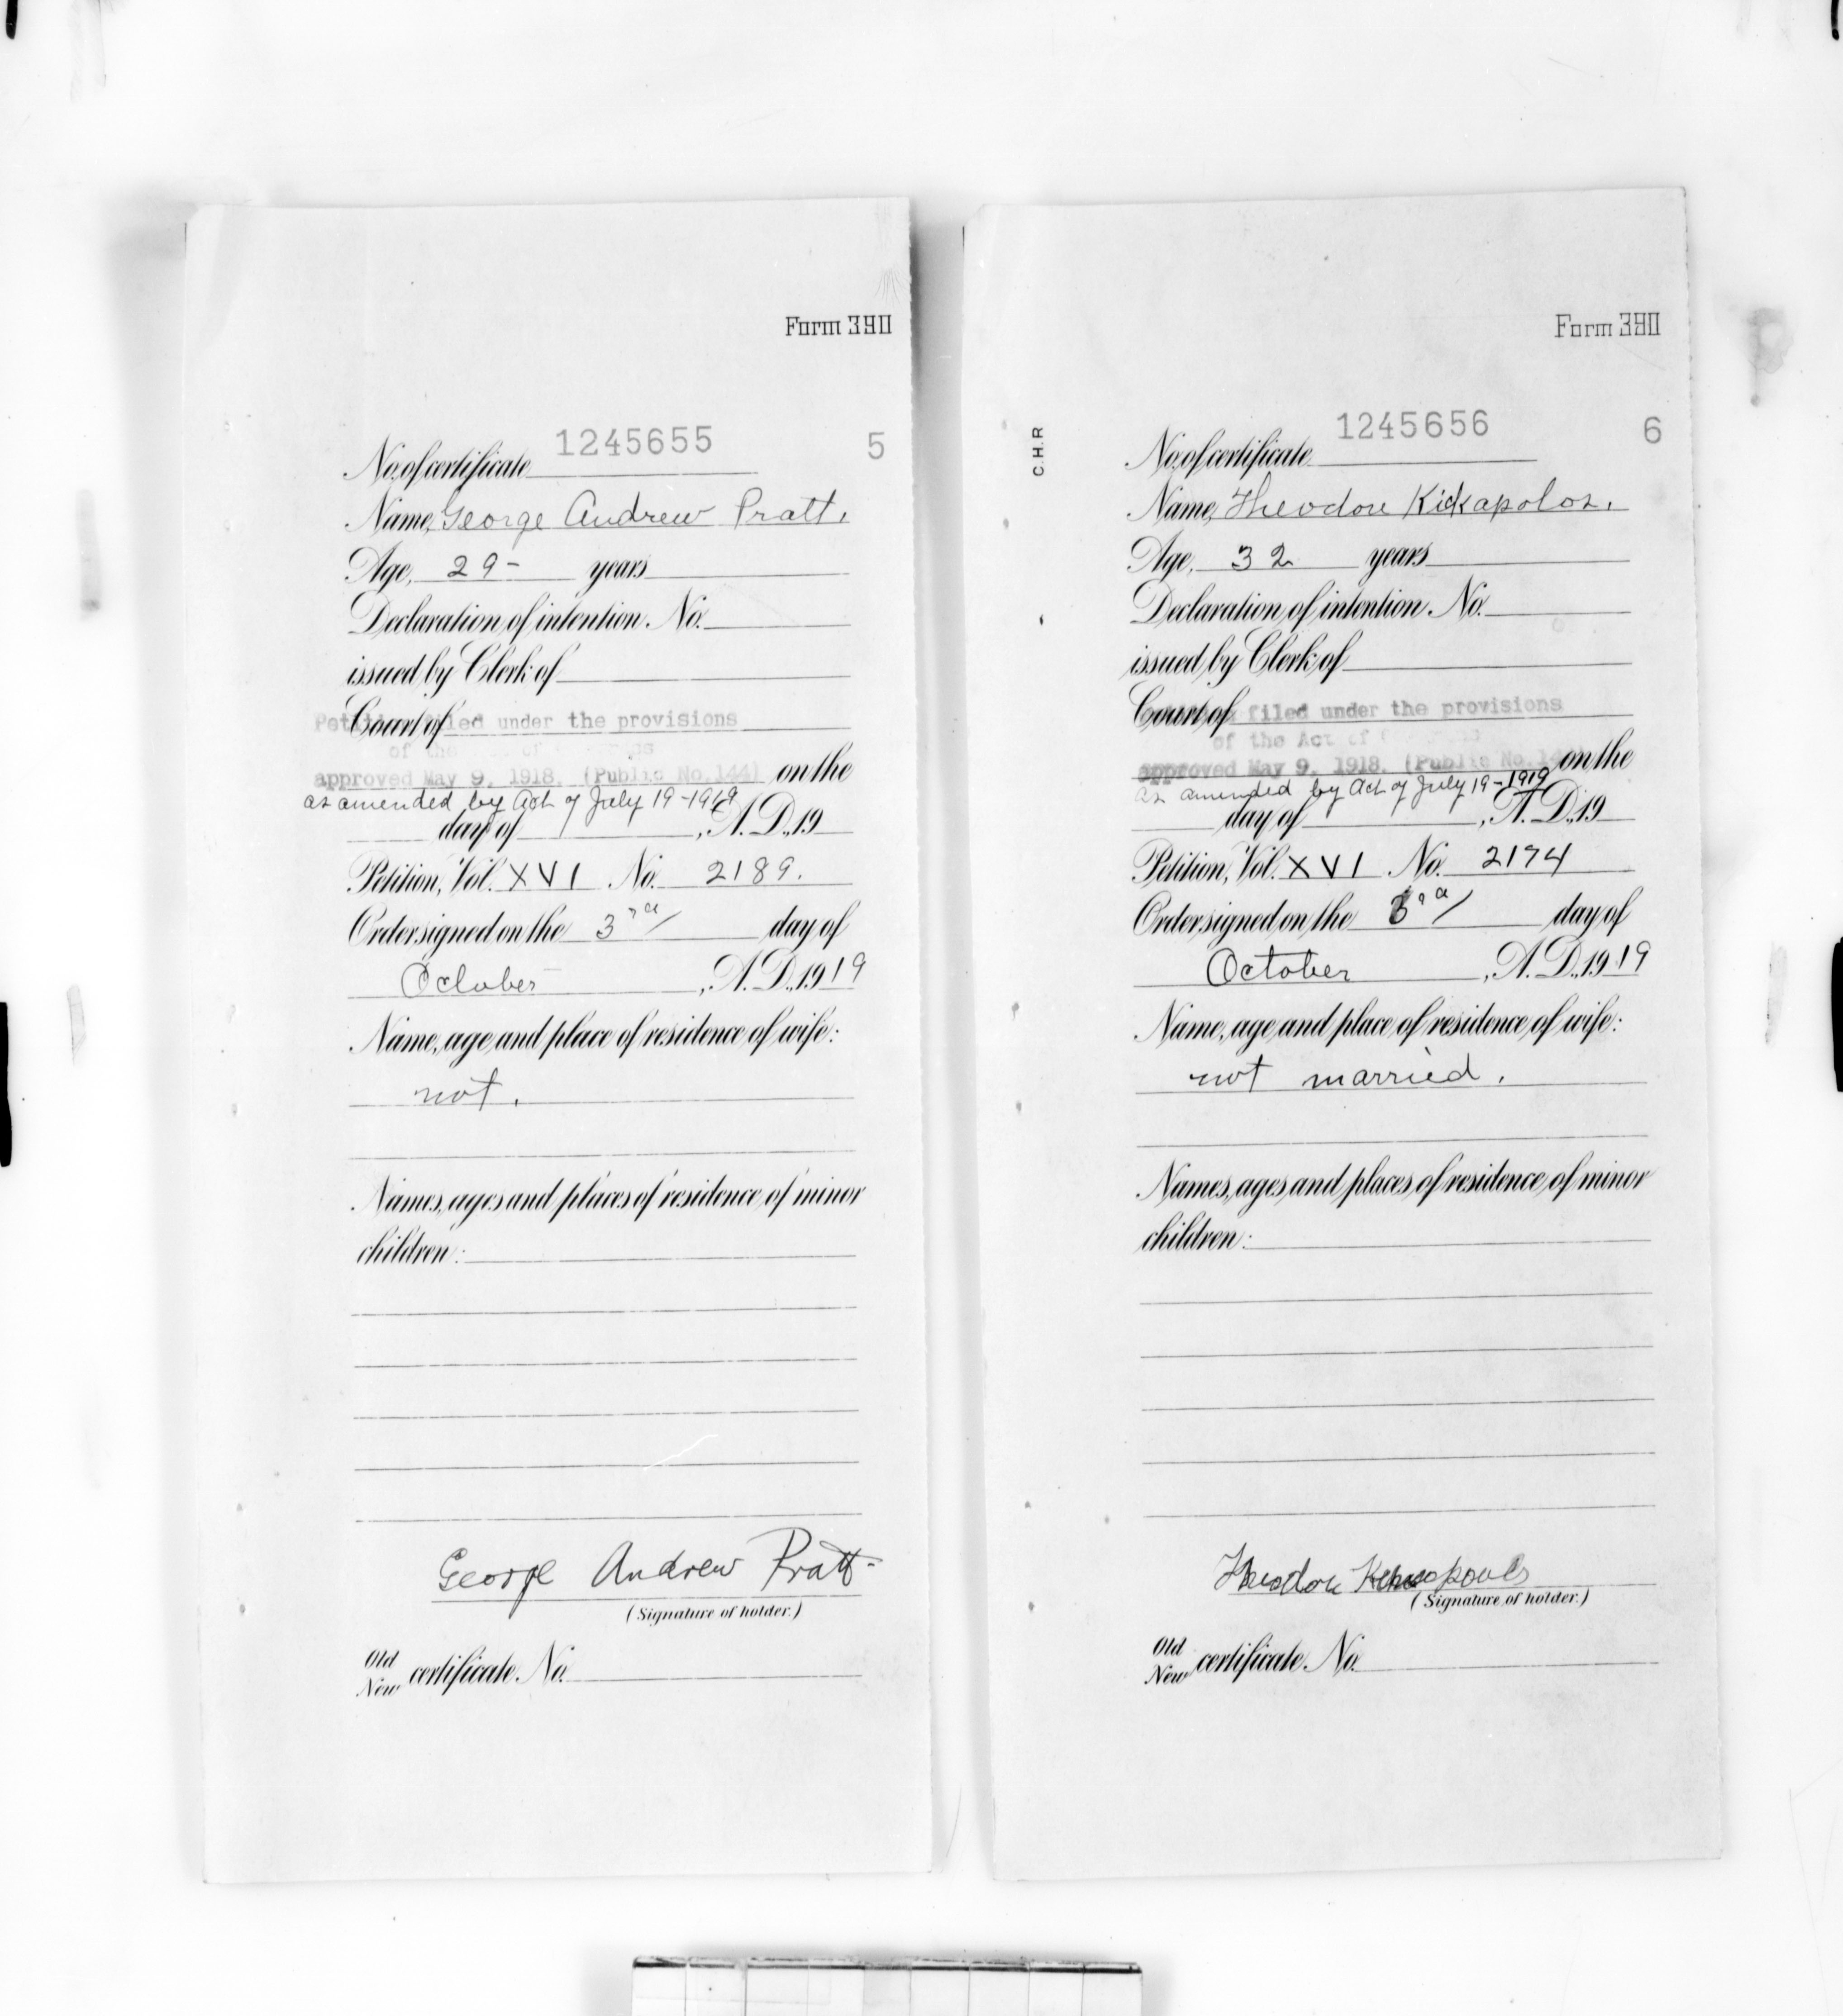 Form 390
1245655 5
No. of certificate
Name, George Andrew Pratt.
Age, 29- years
Declaration of intention No.
issued by Clerk of
Court of
filed under the provisions
of the
approved May 9, 1918. (Public No.144) on the
as amended by Act of July 19-1919
day of , A.D., 19
Petition, Vol. XVI No. 2189.
Order signed on the 3rd day of
October , A.D., 1919
Name, age and place of residence of wife:
not.
Names, ages and places of residence of minor
children:
George Andrew Pratt-
(Signature of holder.)
Old
New certificate No.
Form 390
C.H.R
1245656 6
No. of certificate
Name, Theodore Kickapolos.
Age, 32 years
Declaration of intention No.
issued by Clerk of
Court of filed under the provisions
of the Act of
approved May 9, 1918. (Public No. on the
as amended by Act of July 19-1919
day of , A.D., 19
Petition, Vol. XVI No. 2174
Order signed on the 3rd day of
October , A.D., 1919
Name, age and place of residence of wife:
not married.
Names, ages and places of residence of minor
children:
Theodore
(Signature of holder.)
Old
New certificate No.